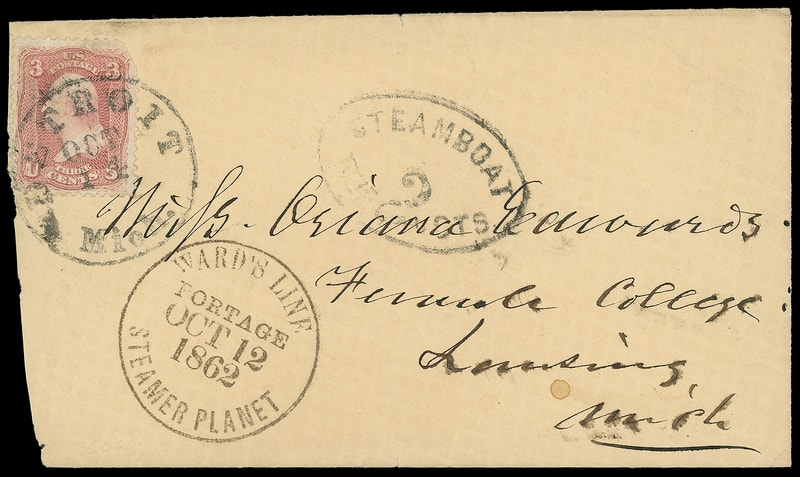 3 U.S. 3
POSTAGE
THREE
CENTS 3
DETROIT
OCT
14
Mich.
STEAMBOAT
2
CTS
Miss. Oriana Edwards
Female College
Lansing
Mich
WARD'S LINE
PORTAGE
OCT 12
1862
STEAMER PLANET